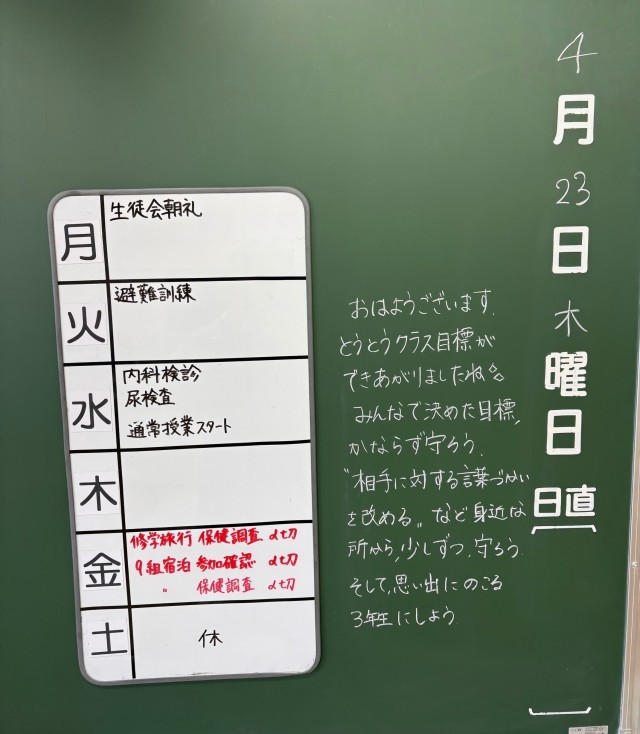 4
月
23
日
木
曜
日
日直
おはようございます.
とうとうクラス目標が
できあがりましたね
みんなで決めた目標,
かならず守ろう.
"相手に対する言葉づかい
を改める〟など身近な
所から,少しずつ,守ろう
そして,思い出にのこる
3年生にしよう
月
生徒会朝礼
火
避難訓練
水
内科検診
尿検査
通常授業スタート
木
金
修学旅行 保健調査 〆切
9組宿泊 参加確認 〆切
〃 保健調査 〆切
土
休